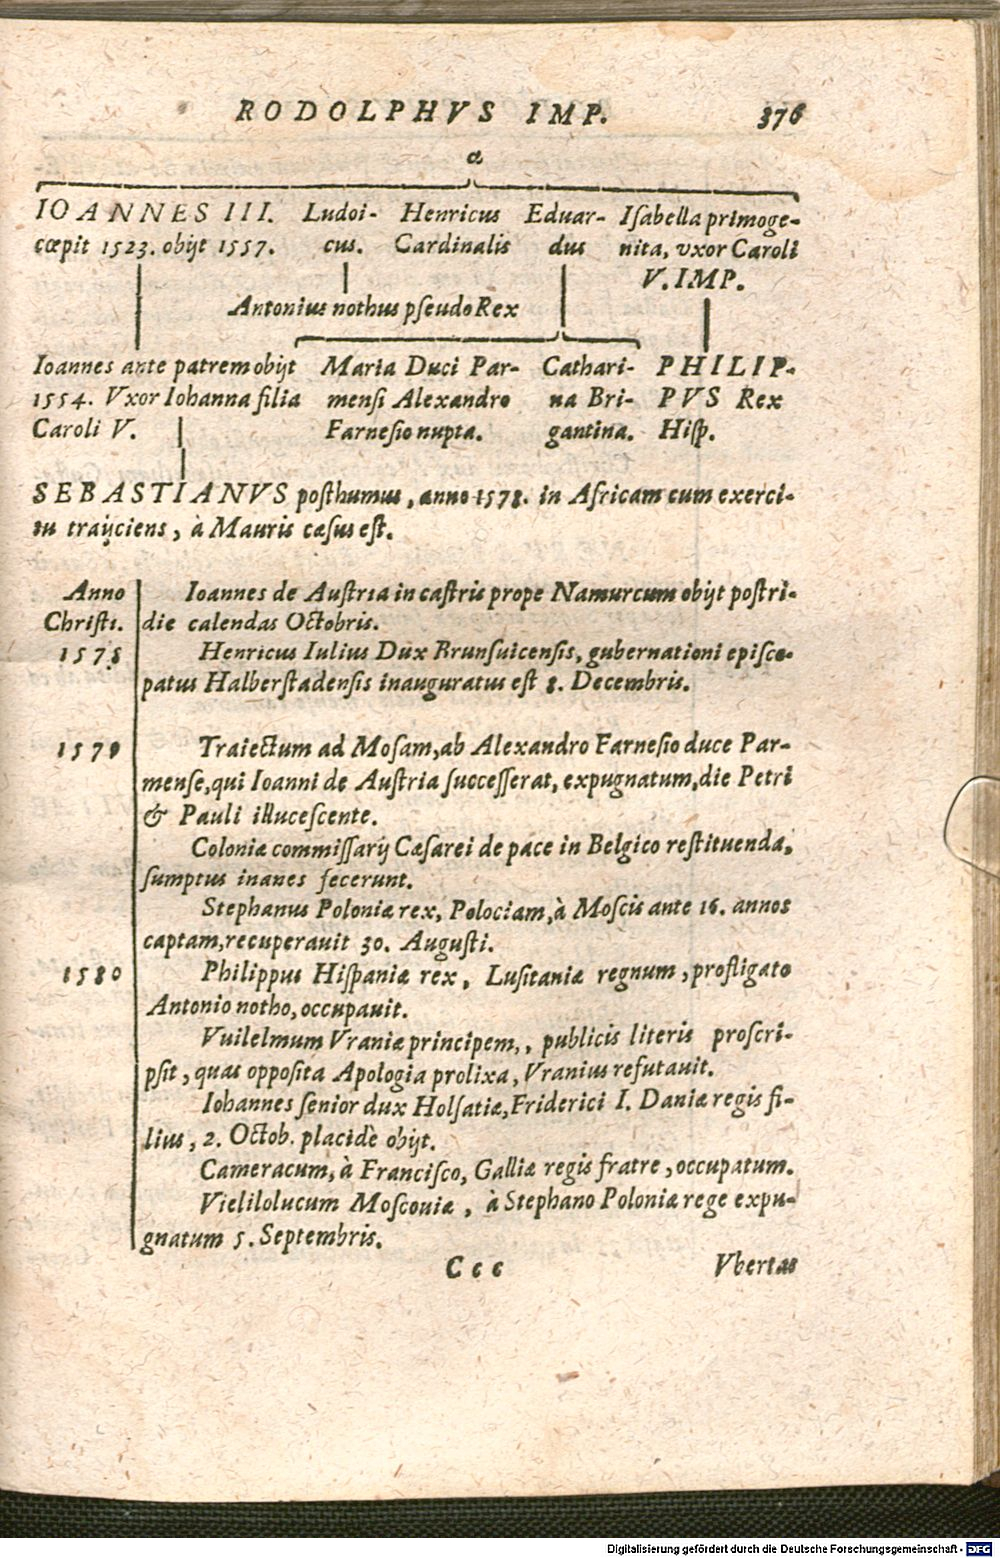 RODOLPHVS IMP. 376
a
IOANNES III. Ludoi- Henricus Eduar- Iſabella primoge-
cœpit 1523. obijt 1557. cus. Cardinalis dus nita, vxor Caroli
V. IMP.
Antonius nothus pſeudo Rex
Ioannes ante patrem obijt Maria Duci Par- Cathari- PHILIP-
1554. Vxor Iohanna filia menſi Alexandro na Bri- PVS Rex
Caroli V. Farneſio nupta. gantina. Hiſp.
SEBASTIANVS poſthumus, anno 1578. in Africam cum exerci-
tu traijciens, à Mauris cæſus eſt.
Anno Ioannes de Auſtria in caſtris prope Namurcum obijt poſtri-
Chriſti. die calendas Octobris.
1578 Henricus Iulius Dux Brunſuicenſis, gubernationi epiſco-
patus Halberſtadenſis inauguratus eſt 8. Decembris.
1579 Traiectum ad Moſam, ab Alexandro Farneſio duce Par-
menſe, qui Ioanni de Auſtria ſucceſſerat, expugnatum, die Petri
& Pauli illuceſcente.
Coloniæ commiſſarij Cæſarei de pace in Belgico reſtituenda,
ſumptus inanes fecerunt.
Stephanus Poloniæ rex, Polociam, à Moſcis ante 16. annos
captam, recuperauit 30. Auguſti.
1580 Philippus Hiſpaniæ rex, Luſitaniæ regnum, profligato
Antonio notho, occupauit.
Vuilelmum Vraniæ principem,, publicis literis proſcri-
pſit, quas oppoſita Apologia prolixa, Vranius refutauit.
Iohannes ſenior dux Holſatiæ, Friderici I. Daniæ regis fi-
lius, 2. Octob. placidè obijt.
Cameracum, à Franciſco, Galliæ regis fratre, occupatum.
Vielilolucum Moſcouiæ, à Stephano Poloniæ rege expu-
gnatum 5. Septembris.
Ccc Vbertas
Digitalisierung gefördert durch die Deutsche Forschungsgemeinschaft - DFG